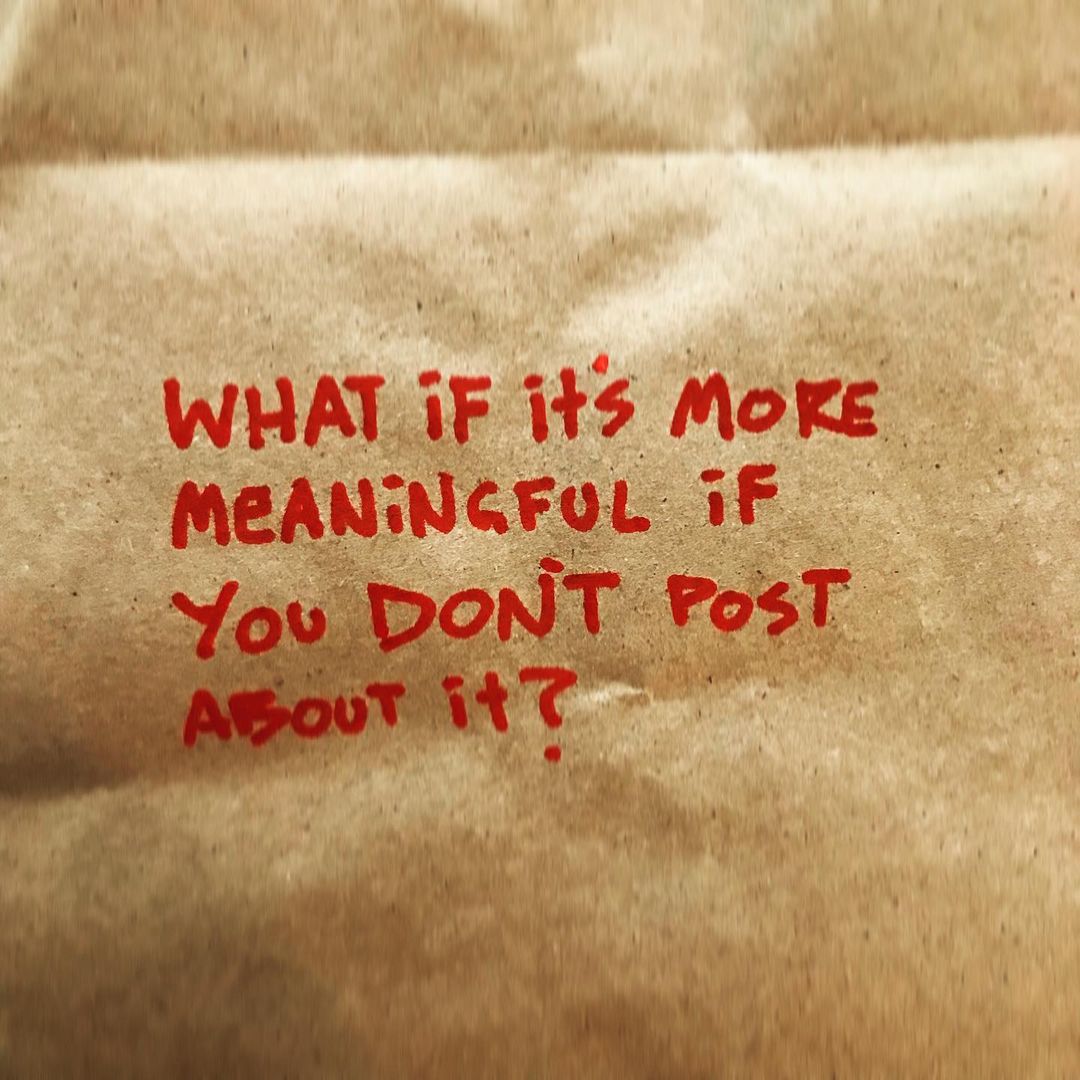 WHAT iF it's MORE
MeANiNGFUL iF
YOU DON'T POST
ABOUT it?